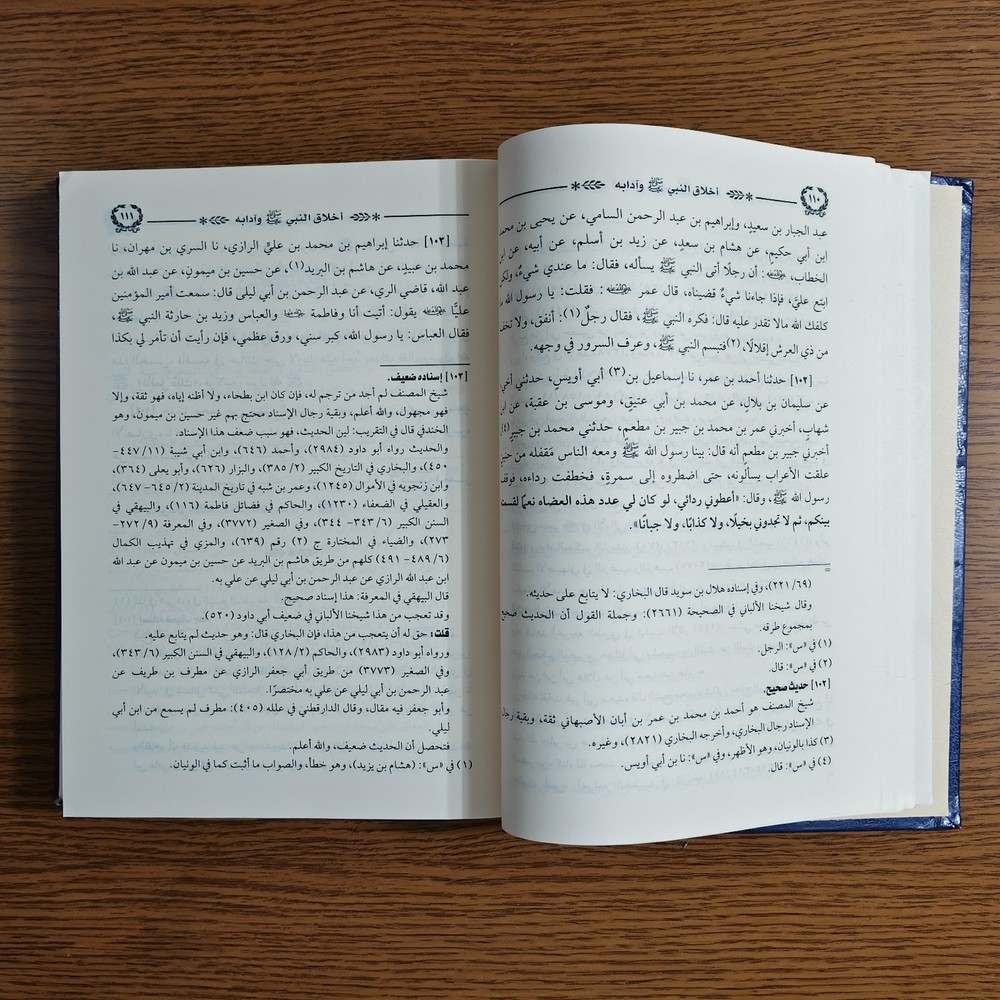 ١١٠
أخلاق النبي ﷺ وآدابه
عبد الجبار بن سعيدٍ، وإبراهيم بن عبد الرحمن السامي، عن يحيى بن محمد
ابن أبي حكيمٍ، عن هشام بن سعدٍ، عن زيد بن أسلم، عن أبيه، عن ابن
الخطاب، رضي الله عنه: أن رجلًا أتى النبي ﷺ يسأله، فقال: ما عندي شيءٌ، ولكن
ابتع عليَّ، فإذا جاءنا شيءٌ قضيناه، قال عمر رضي الله عنه: فقلت: يا رسول الله
كلفك الله مالا تقدر عليه قال: فكره النبي ﷺ، فقال رجلٌ(١): أنفق، ولا تخف
من ذي العرش إقلالًا، (٢)فتبسم النبي ﷺ، وعرف السرور في وجهه.
[١٠٢] حدثنا أحمد بن عمر، نا إسماعيل بن(٣) أبي أويسٍ، حدثني أخي
عن سليمان بن بلالٍ، عن محمد بن أبي عتيقٍ، وموسى بن عقبة، عن ابن
شهابٍ، أخبرني عمر بن محمد بن جبير بن مطعمٍ، حدثني محمد بن جبيرٍ(٤)
أخبرني جبير بن مطعمٍ أنه قال: بينا رسول الله ﷺ ومعه الناس مَقفله من حنين
علقت الأعراب يسألونه، حتى اضطروه إلى سمرةٍ، فخطفت رداءه، فوقف
رسول الله ﷺ، وقال: «أعطوني ردائي، لو كان لي عدد هذه العضاه نعمًا لقسمته
بينكم، ثم لا تجدوني بخيلًا، ولا كذابًا، ولا جبانًا».
=
(٢٢١/٦٩)، وفي إسناده هلال بن سويد قال البخاري: لا يتابع على حديثه.
وقال شيخنا الألباني في الصحيحة (٢٦٦١): وجملة القول أن الحديث صحيح
بمجموع طرقه.
(١) في «س»: الرجل.
(٢) في «س»: قال.
[١٠٢] حديث صحيح.
شيخ المصنف هو أحمد بن محمد بن عمر بن أبان الأصبهاني ثقة، وبقية رجال
الإسناد رجال البخاري، وأخرجه البخاري (٢٨٢١)، وغيره.
(٣) كذا بالونيان، وهو الأظهر، وفي «س»: نا بن أبي أويس.
(٤) في «س»: قال.
١١١
أخلاق النبي ﷺ وآدابه
[١٠٣] حدثنا إبراهيم بن محمد بن عليٍّ الرازي، نا السري بن مهران، نا
محمد بن عبيدٍ، عن هاشم بن البريد(١)، عن حسين بن ميمونٍ، عن عبد الله بن
عبد الله، قاضي الري، عن عبد الرحمن بن أبي ليلى قال: سمعت أمير المؤمنين
عليًّا رضي الله عنه يقول: أتيت أنا وفاطمة رضي الله عنها والعباس وزيد بن حارثة النبي ﷺ،
فقال العباس: يا رسول الله، كبر سني، ورق عظمي، فإن رأيت أن تأمر لي بكذا
[١٠٣] إسناده ضعيف.
شيخ المصنف لم أجد من ترجم له، فإن كان ابن بطحاء، ولا أظنه إياه، فهو ثقة، وإلا
فهو مجهول، والله أعلم، وبقية رجال الإسناد محتج بهم غير حسين بن ميمون، وهو
الخندفي قال في التقريب: لين الحديث، فهو سبب ضعف هذا الإسناد.
والحديث رواه أبو داود (٢٩٨٤)، وأحمد (٦٤٦)، وابن أبي شيبة (١١/ ٤٤٧-
٤٥٠)، والبخاري في التاريخ الكبير (٢/ ٣٨٥)، والبزار (٦٢٦)، وأبو يعلى (٣٦٤)،
وابن زنجويه في الأموال (١٢٤٥)، وعمر بن شبه في تاريخ المدينة (٢/ ٦٤٥- ٦٤٧)،
والعقيلي في الضعفاء (١٢٣٠)، والحاكم في فضائل فاطمة (١١٦)، والبيهقي في
السنن الكبير (٦/ ٣٤٣- ٣٤٤)، وفي الصغير (٣٧٧٢)، وفي المعرفة (٩/ ٢٧٢-
٢٧٣)، والضياء في المختارة ج (٢) رقم (٦٣٩)، والمزي في تهذيب الكمال
(٦/ ٤٨٩- ٤٩١) كلهم من طريق هاشم بن البريد عن حسين بن ميمون عن عبد الله
ابن عبد الله الرازي عن عبد الرحمن بن أبي ليلي عن علي به.
قال البيهقي في المعرفة: هذا إسناد صحيح.
وقد تعجب من هذا شيخنا الألباني في ضعيف أبي داود (٥٢٠).
قلت: حق له أن يتعجب من هذا، فإن البخاري قال: وهو حديث لم يتابع عليه.
ورواه أبو داود (٢٩٨٣)، والحاكم (٢/ ١٢٨)، والبيهقي في السنن الكبير (٦/ ٣٤٣)،
وفي الصغير (٣٧٧٣) من طريق أبي جعفر الرازي عن مطرف بن طريف عن
عبد الرحمن بن أبي ليلي عن علي به مختصرًا.
وأبو جعفر فيه مقال، وقال الدارقطني في علله (٤٠٥): مطرف لم يسمع من ابن أبي
ليلي.
فتحصل أن الحديث ضعيف، والله أعلم.
(١) في «س»: (هشام بن يزيد)، وهو خطأ، والصواب ما أثبت كما في الونيان.